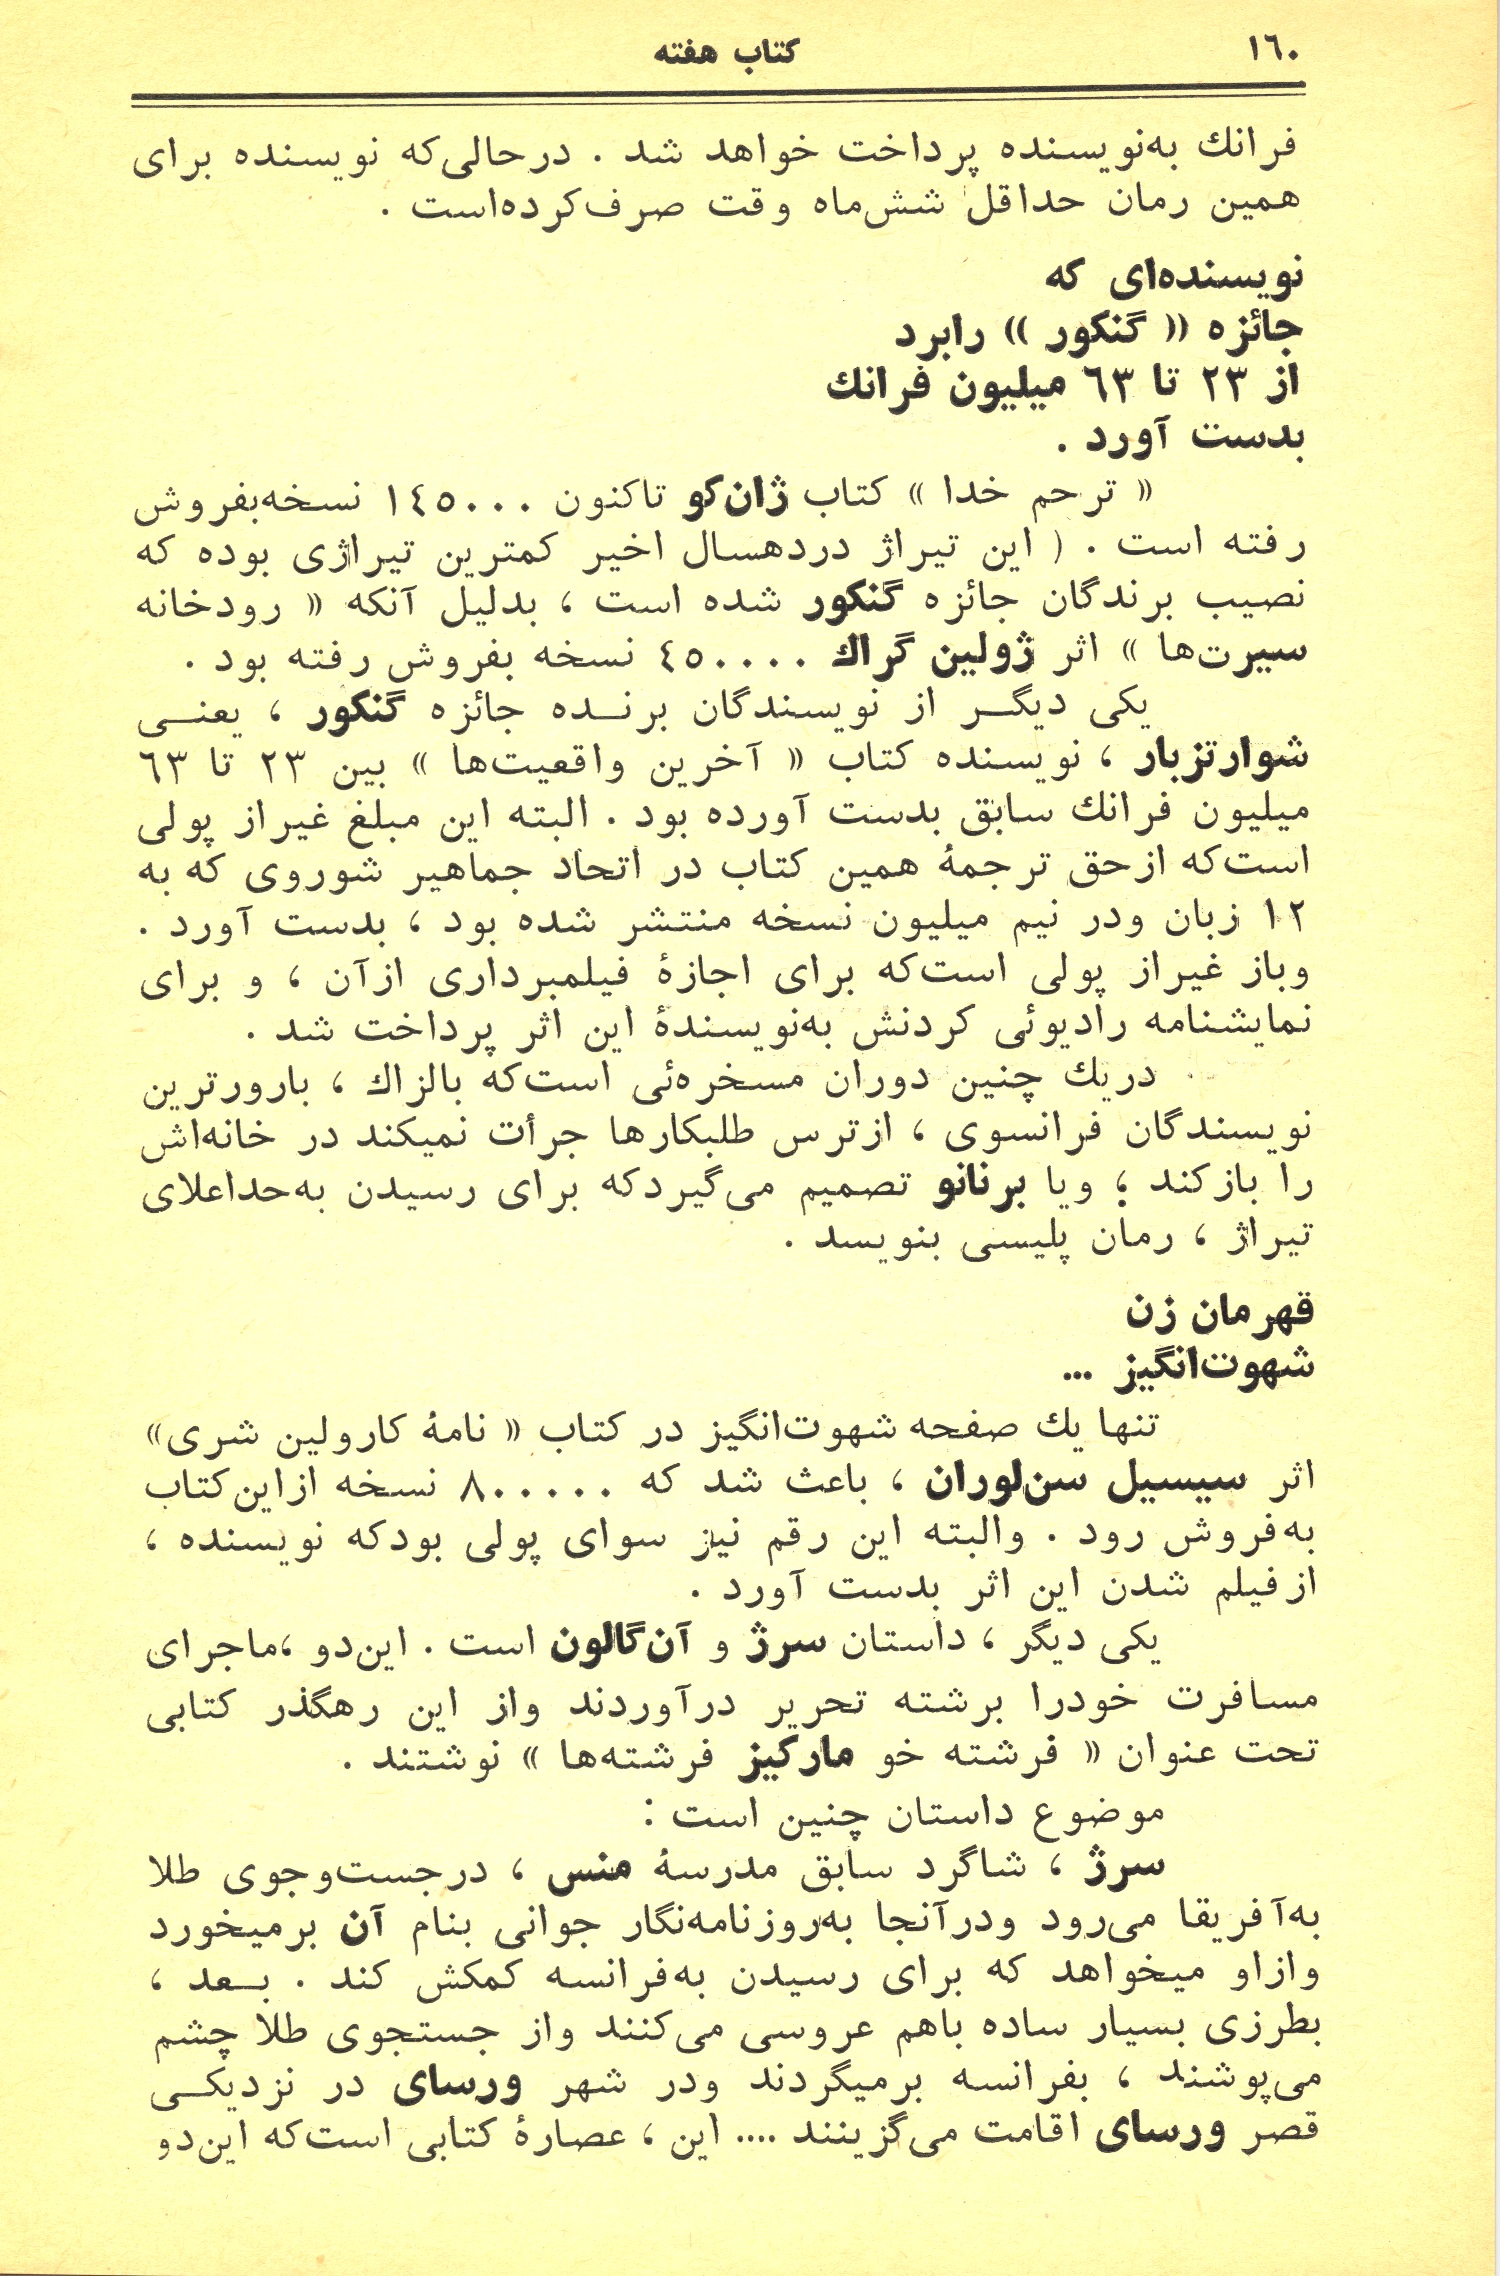 ۱٦۰
کتاب هفته
فرانك به‌نویسنده پرداخت خواهد شد . درحالی‌که نویسنده برای
همین رمان حداقل شش‌ماه وقت صرف‌کرده‌است .
نویسنده‌ای که
جائزه « گنکور » رابرد
از ۲۳ تا ٦۳ میلیون فرانك
بدست آورد .
« ترحم خدا » کتاب ژان‌کو تاکنون ۱٤٥۰۰۰ نسخه‌بفروش
رفته است . ( این تیراژ دردهسال اخیر کمترین تیراژی بوده که
نصیب برندگان جائزه گنکور شده است ، بدلیل آنکه « رودخانه
سیرت‌ها » اثر ژولین گراك ٤٥۰۰۰۰ نسخه بفروش رفته بود .
یکی دیگر از نویسندگان برنده جائزه گنکور ، یعنی
شوارتزبار ، نویسنده کتاب « آخرین واقعیت‌ها » بین ۲۳ تا ٦۳
میلیون فرانك سابق بدست آورده بود . البته این مبلغ غیراز پولی
است‌که ازحق ترجمهٔ همین کتاب در اتحاد جماهیر شوروی که به
۱۲ زبان ودر نیم میلیون نسخه منتشر شده بود ، بدست آورد .
وباز غیراز پولی است‌که برای اجازهٔ فیلمبرداری ازآن ، و برای
نمایشنامه رادیوئی کردنش به‌نویسندهٔ این اثر پرداخت شد .
دریك چنین دوران مسخره‌ئی است‌که بالزاك ، بارورترین
نویسندگان فرانسوی ، ازترس طلبکارها جرأت نمیکند در خانه‌اش
را بازکند ؛ ویا برنانو تصمیم می‌گیردکه برای رسیدن به‌حداعلای
تیراژ ، رمان پلیسی بنویسد .
قهرمان زن
شهوت‌انگیز ...
تنها یك صفحه شهوت‌انگیز در کتاب « نامهٔ کارولین شری»
اثر سیسیل سن‌لوران ، باعث شد که ۸۰۰۰۰۰ نسخه ازاین‌کتاب
به‌فروش رود . والبته این رقم نیز سوای پولی بودکه نویسنده ،
ازفیلم شدن این اثر بدست آورد .
یکی دیگر ، داستان سرژ و آن‌گالون است . این‌دو ،ماجرای
مسافرت خودرا برشته تحریر درآوردند واز این رهگذر کتابی
تحت عنوان « فرشته خو مارکیز فرشته‌ها » نوشتند .
موضوع داستان چنین است :
سرژ ، شاگرد سابق مدرسهٔ منس ، درجست‌وجوی طلا
به‌آفریقا می‌رود ودرآنجا به‌روزنامه‌نگار جوانی بنام آن برمیخورد
وازاو میخواهد که برای رسیدن به‌فرانسه کمکش کند . بعد ،
بطرزی بسیار ساده باهم عروسی می‌کنند واز جستجوی طلا چشم
می‌پوشند ، بفرانسه برمیگردند ودر شهر ورسای در نزدیکی
قصر ورسای اقامت می‌گزینند .... این ، عصارهٔ کتابی است‌که این‌دو